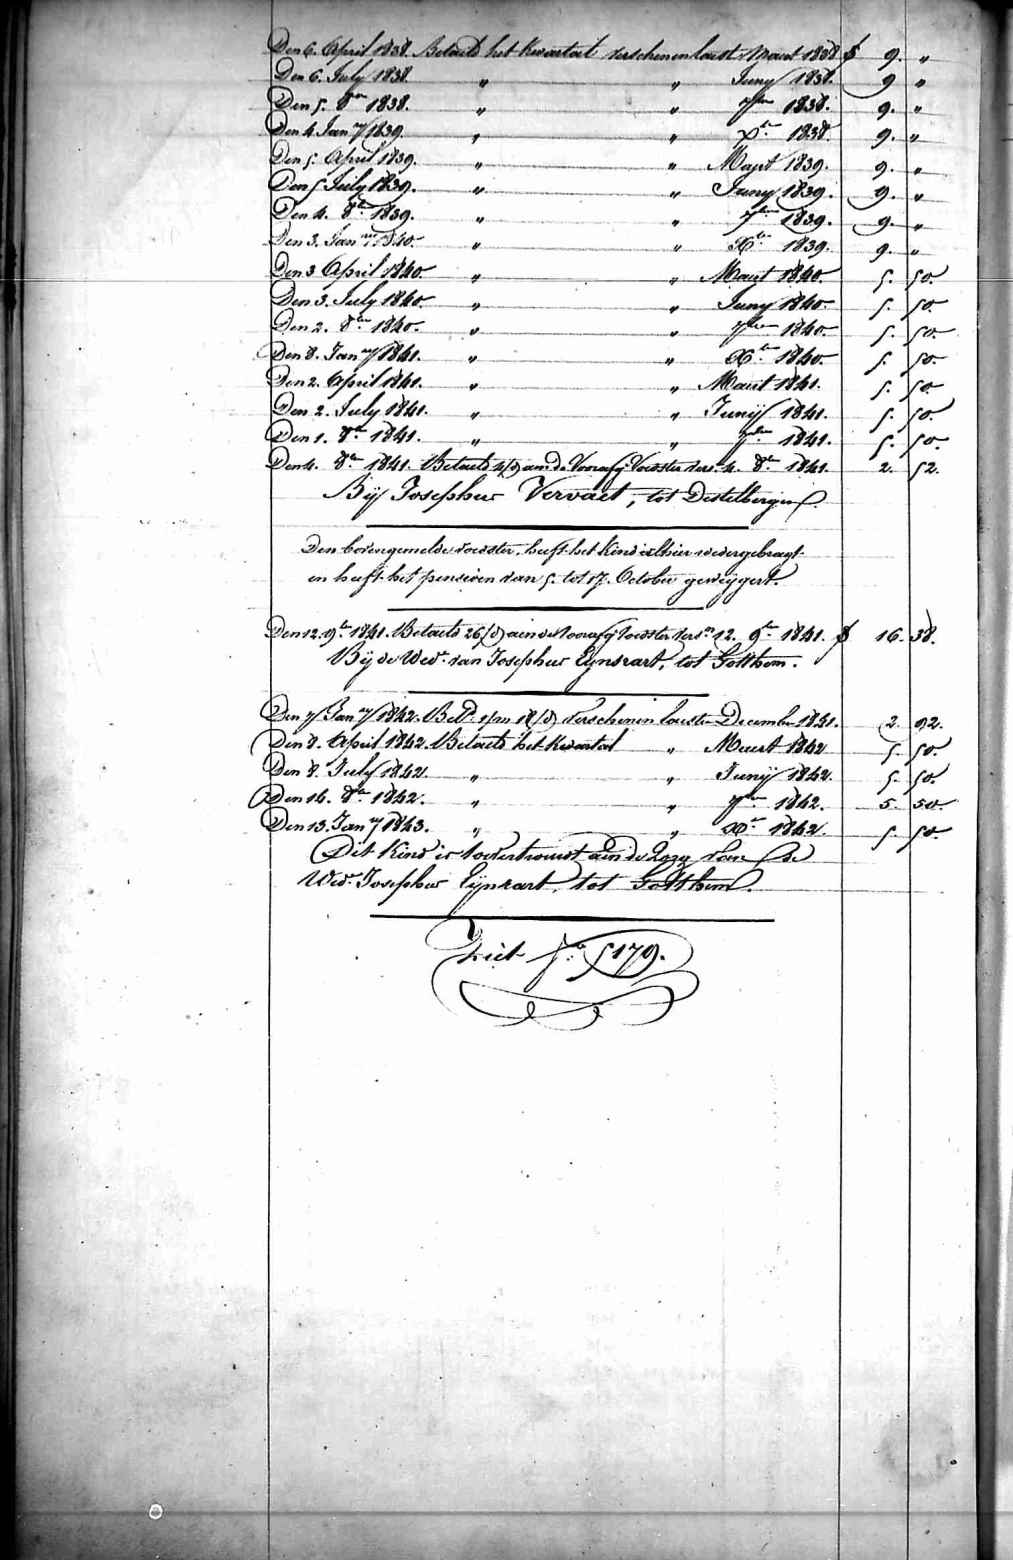 Den 6. April 1838. Betaeld het kwartael verschenen laast Maart 1838 f 9. "
Den 6. July 1838. " " Juny 1838. 9 "
Den 5. 8bre 1838. " " 7bre 1838. 9. "
Den 4 Jany 1839. " " Xbr 1838 9. "
Den 5. April 1839. " " Maart 1839. 9. "
Den 5 July 1839. " " Juny 1839. 9. "
Den 4. 8br 1839. " " 7bre 1839. 9. "
Den 3. Jany 1840. " " Xbr 1839. 9. "
Den 3 April 1840. " " Maart 1840. 5. 50.
Den 3. July 1840. " " Juny 1840. 5. 50.
Den 2. 8br 1840. " " 7bre 1840. 5. 50.
Den 8. Jany 1841. " " Xbr 1840. 5. 50.
Den 2. April 1841. " " Maart 1841. 5. 50.
Den 2. July 1841. " " Junij 1841. 5. 50.
Den 1. 8br 1841. " " 7bre 1841. 5. 50.
Den 4. 8br 1841. Betaeld 4/d aan de Voorafg. Voedster vers. 4. 8br 1841. 2. 52.
Bij Josephus Vervaet, tot Destelbergen.
Den bovengemelde voedster, heeft het kind alhier wedergebragt
en heeft het pensioen van 5. tot 17. October geweijgert.
Den 12. 9br 1841. Betaeld 26/d aan de Voorafg. Voedster vers.n 12. 9br 1841. f 16. 38.
Bij de Wed.e van Josephus Eijnsaart, tot Gotthem.
Den 7 Jany 1842. Bet.d 1/m 18/d verschenen laaste December 1841. 2. 92.
Den 8. April 1842. Betaeld het kwartael " Maart 1842 5. 50.
Den 8. July 1842. " " Junij 1842 5. 50.
Den 14. 8br 1842. " " 7bre 1842. 5. 50.
Den 13. Jany 1843. " " Xbr 1842. 5. 50.
Dit kind is toevertrouwt aen de zorg van de
Wed.e Josephus Eijnsaart, tot Gotthem.
Ziet f.o 5179.